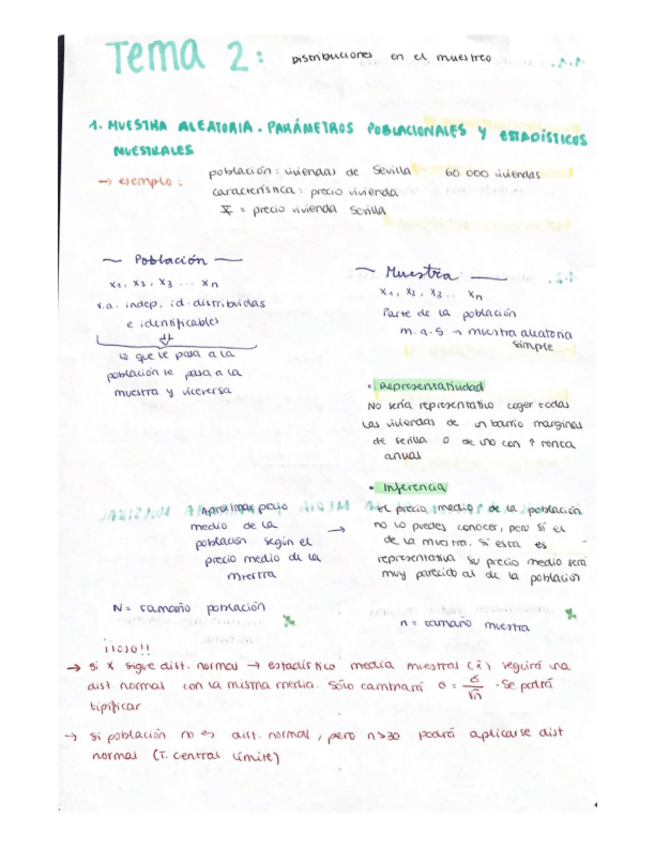 Tema 2: Distribuciones en el muestreo
1. MUESTRA ALEATORIA. PARÁMETROS POBLACIONALES Y ESTADÍSTICOS
MUESTRALES
→ ejemplo:
población: viviendas de Sevilla 60 000 viviendas
característica: precio vivienda
X = precio vivienda Sevilla
~ Población ~
x1, x2, x3 ... xn
v.a. indep, id. distribuidas
e identificables
lo que le pasa a la
población le pasa a la
muestra y viceversa
~ Muestra
x1, x2, x3 .. xn
Parte de la población
m.a.s → muestra aleatoria
simple
• Representatividad
No sería representativo coger todas
las viviendas de un barrio marginal
de sevilla o de uno con ↑ renta
anual
• Inferencia
el precio medio de la población
no lo puedes conocer, pero sí el
de la muestra. Si esta es
representativa su precio medio será
muy parecido al de la población
precio
medio de la
población según el
precio medio de la
muestra
→
N = tamaño población
n = tamaño muestra
→ si x sigue dist. normal → estadístico media muestral (x̄) seguirá una
dist normal con la misma media. Sólo cambiará σ = σ/√n. Se podrá
tipificar
→ si población no es dist. normal, pero n>30 podrá aplicarse dist
normal (T. central límite)
1